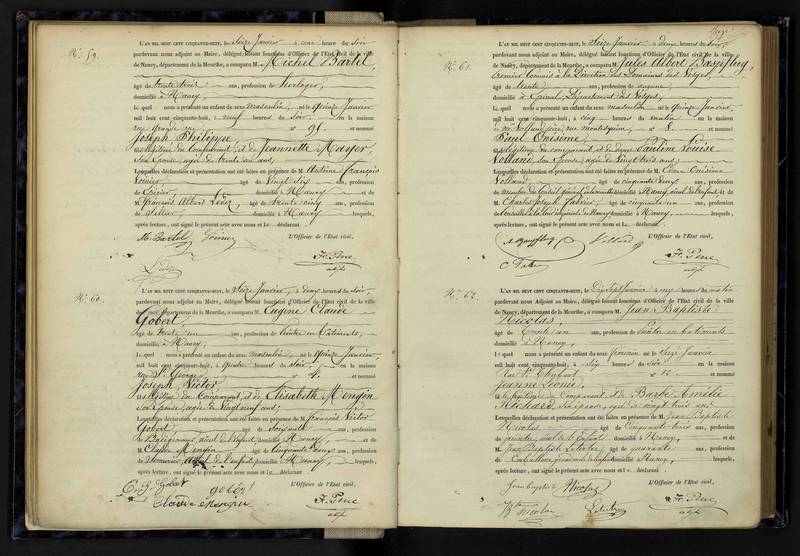 N.° 59.
L'AN MIL HUIT CENT CINQUANTE-HUIT, le Seize Janvier à une heure du soir
pardevant nous Adjoint au Maire, délégué faisant fonctions d'Officier de l'Etat civil de la ville
de Nancy, département de la Meurthe, a comparu M. Michel Bartel,
âgé de trente trois ans, profession de horloger,
domicilié à Nancy,
Lequel nous a présenté un enfant du sexe masculin, né le Quinze Janvier
mil huit cent cinquante-huit, à neuf heures du soir, en la maison
rue Grande rue n° 96. et nommé
Joseph Philippe
fils légitime du Comparant, et de Jeannette Mayer,
son Epouse, agée de trente ans,
Lesquelles déclaration et présentation ont été faites en présence de M. Antoine François
âgé de Vingt six ans, profession
domicilié à Nancy et de
M. François Albert âgé de trente cinq ans, profession
de Sellier domicilié à Nancy lesquels,
après lecture, ont signé le présent acte avec nous et le déclarant
M. Bartel
L'Officier de l'Etat civil,
adjt
N.° 60.
L'AN MIL HUIT CENT CINQUANTE-HUIT, le Seize Janvier, à deux heures du soir,
pardevant nous Adjoint au Maire, délégué faisant fonctions d'Officier de l'Etat civil de la ville
de Nancy, département de la Meurthe, a comparu M. Eugène Claude
Gobert,
âgé de trente un ans, profession de peintre en bâtiments,
domicilié à Nancy,
Lequel nous a présenté un enfant du sexe masculin, né le Quinze Janvier
mil huit cent cinquante-huit, à quatre heures du soir, en la maison
rue St. George n° 4. et nommé
Joseph Victor
fils légitime du Comparant, et de Elisabeth Mengin
son Epouse, agée de Vingt neuf ans;
Lesquelles déclaration et présentation ont été faites en présence de M. François Victor
Gobert âgé de Soixante ans, profession
de Badigeonneur, aïeul de l'enfant, domicilié à Nancy, et de
M. Claude Mengin âgé de Cinquante deux ans, profession
de Serrurier, aïeul de l'enfant, domicilié à Nancy, lesquels,
après lecture, ont signé le présent acte avec nous et le déclarant
Gobert gobert
Claude mengin
L'Officier de l'Etat civil,
adjt
N.° 61.
L'AN MIL HUIT CENT CINQUANTE-HUIT, le Seize Janvier à deux heures du soir,
pardevant nous Adjoint au Maire, délégué faisant fonctions d'Officier de l'Etat civil de la ville
de Nancy, département de la Meurthe, a comparu M. Jules Albert
premier Commis à la Direction des Domaines des Vosges,
âgé de trente ans, profession de
domicilié à Epinal, Département des Vosges,
Lequel nous a présenté un enfant du sexe masculin né le Quinze Janvier,
mil huit cent cinquante-huit, à cinq heures du matin en la maison
de Mr. Volland père, rue montesquieu, n° 8. et nommé
Paul Onésime
fils légitime du comparant, et de Dame Pauline Louise
Volland, son épouse, agée de Vingt trois ans;
Lesquelles déclaration et présentation ont été faites en présence de M. Onésime
Volland âgé de cinquante deux ans, profession
domicilié à Nancy, aïeul de l'enfant, et de
M. Charles Joseph Fabvier, âgé de cinquante un ans, profession
domicilié à Nancy, lesquels,
après lecture, ont signé le présent acte avec nous et le déclarant
Volland
L'Officier de l'Etat civil,
adjt
N.° 62.
L'AN MIL HUIT CENT CINQUANTE-HUIT, le Dix sept Janvier à heures du matin
pardevant nous Adjoint au Maire, délégué faisant fonctions d'Officier de l'Etat civil de la ville
de Nancy, département de la Meurthe, a comparu M. Jean Baptiste
Nicolas,
âgé de trente un ans, profession de peintre en bâtiments
domicilié à Nancy,
Lequel nous a présenté un enfant du sexe féminin né le Seize Janvier
mil huit cent cinquante-huit, à six heures du soir en la maison
Rue St. Thiébaut n° 12 et nommé
Jeanne Léonie,
fille légitime du Comparant et de Barbe Amélie
Richard, son épouse, agée de vingt trois ans
Lesquelles déclaration et présentation ont été faites en présence de M. Jean Baptiste
Nicolas âgé de Cinquante trois ans, profession
de peintre, aïeul de l'Enfant domicilié à Nancy, et de
M. Jean Baptiste âgé de quarante ans, profession
domicilié à Nancy, lesquels,
après lecture, ont signé le présent acte avec nous et le déclarant
Jean baptiste Nicolas
Nicolas
L'Officier de l'Etat civil,
adjt